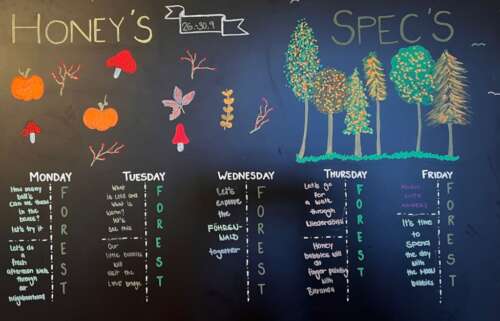 HONEY'S
26.-30.9
SPEC'S
MONDAY
How many
ball's
can we throw
in the
boxes?
Let's try it
Let's do
a
fresh
afternoon walk
through
our
neighborhood
FOREST
TUESDAY
What
is cold and
what is
warm?
let's
see this
Our
little bubbies
will
visit the
FOREST
WEDNESDAY
Let's
explore
the
FÖHREN-
WALD
together
FOREST
THURSDAY
Let's go
for
a walk
through
Honey
bubbies will
do
finger painting
with
FOREST
FRIDAY
MUSIC
WITH
It's time
to
spend
the day
with
the
bubbies
FOREST